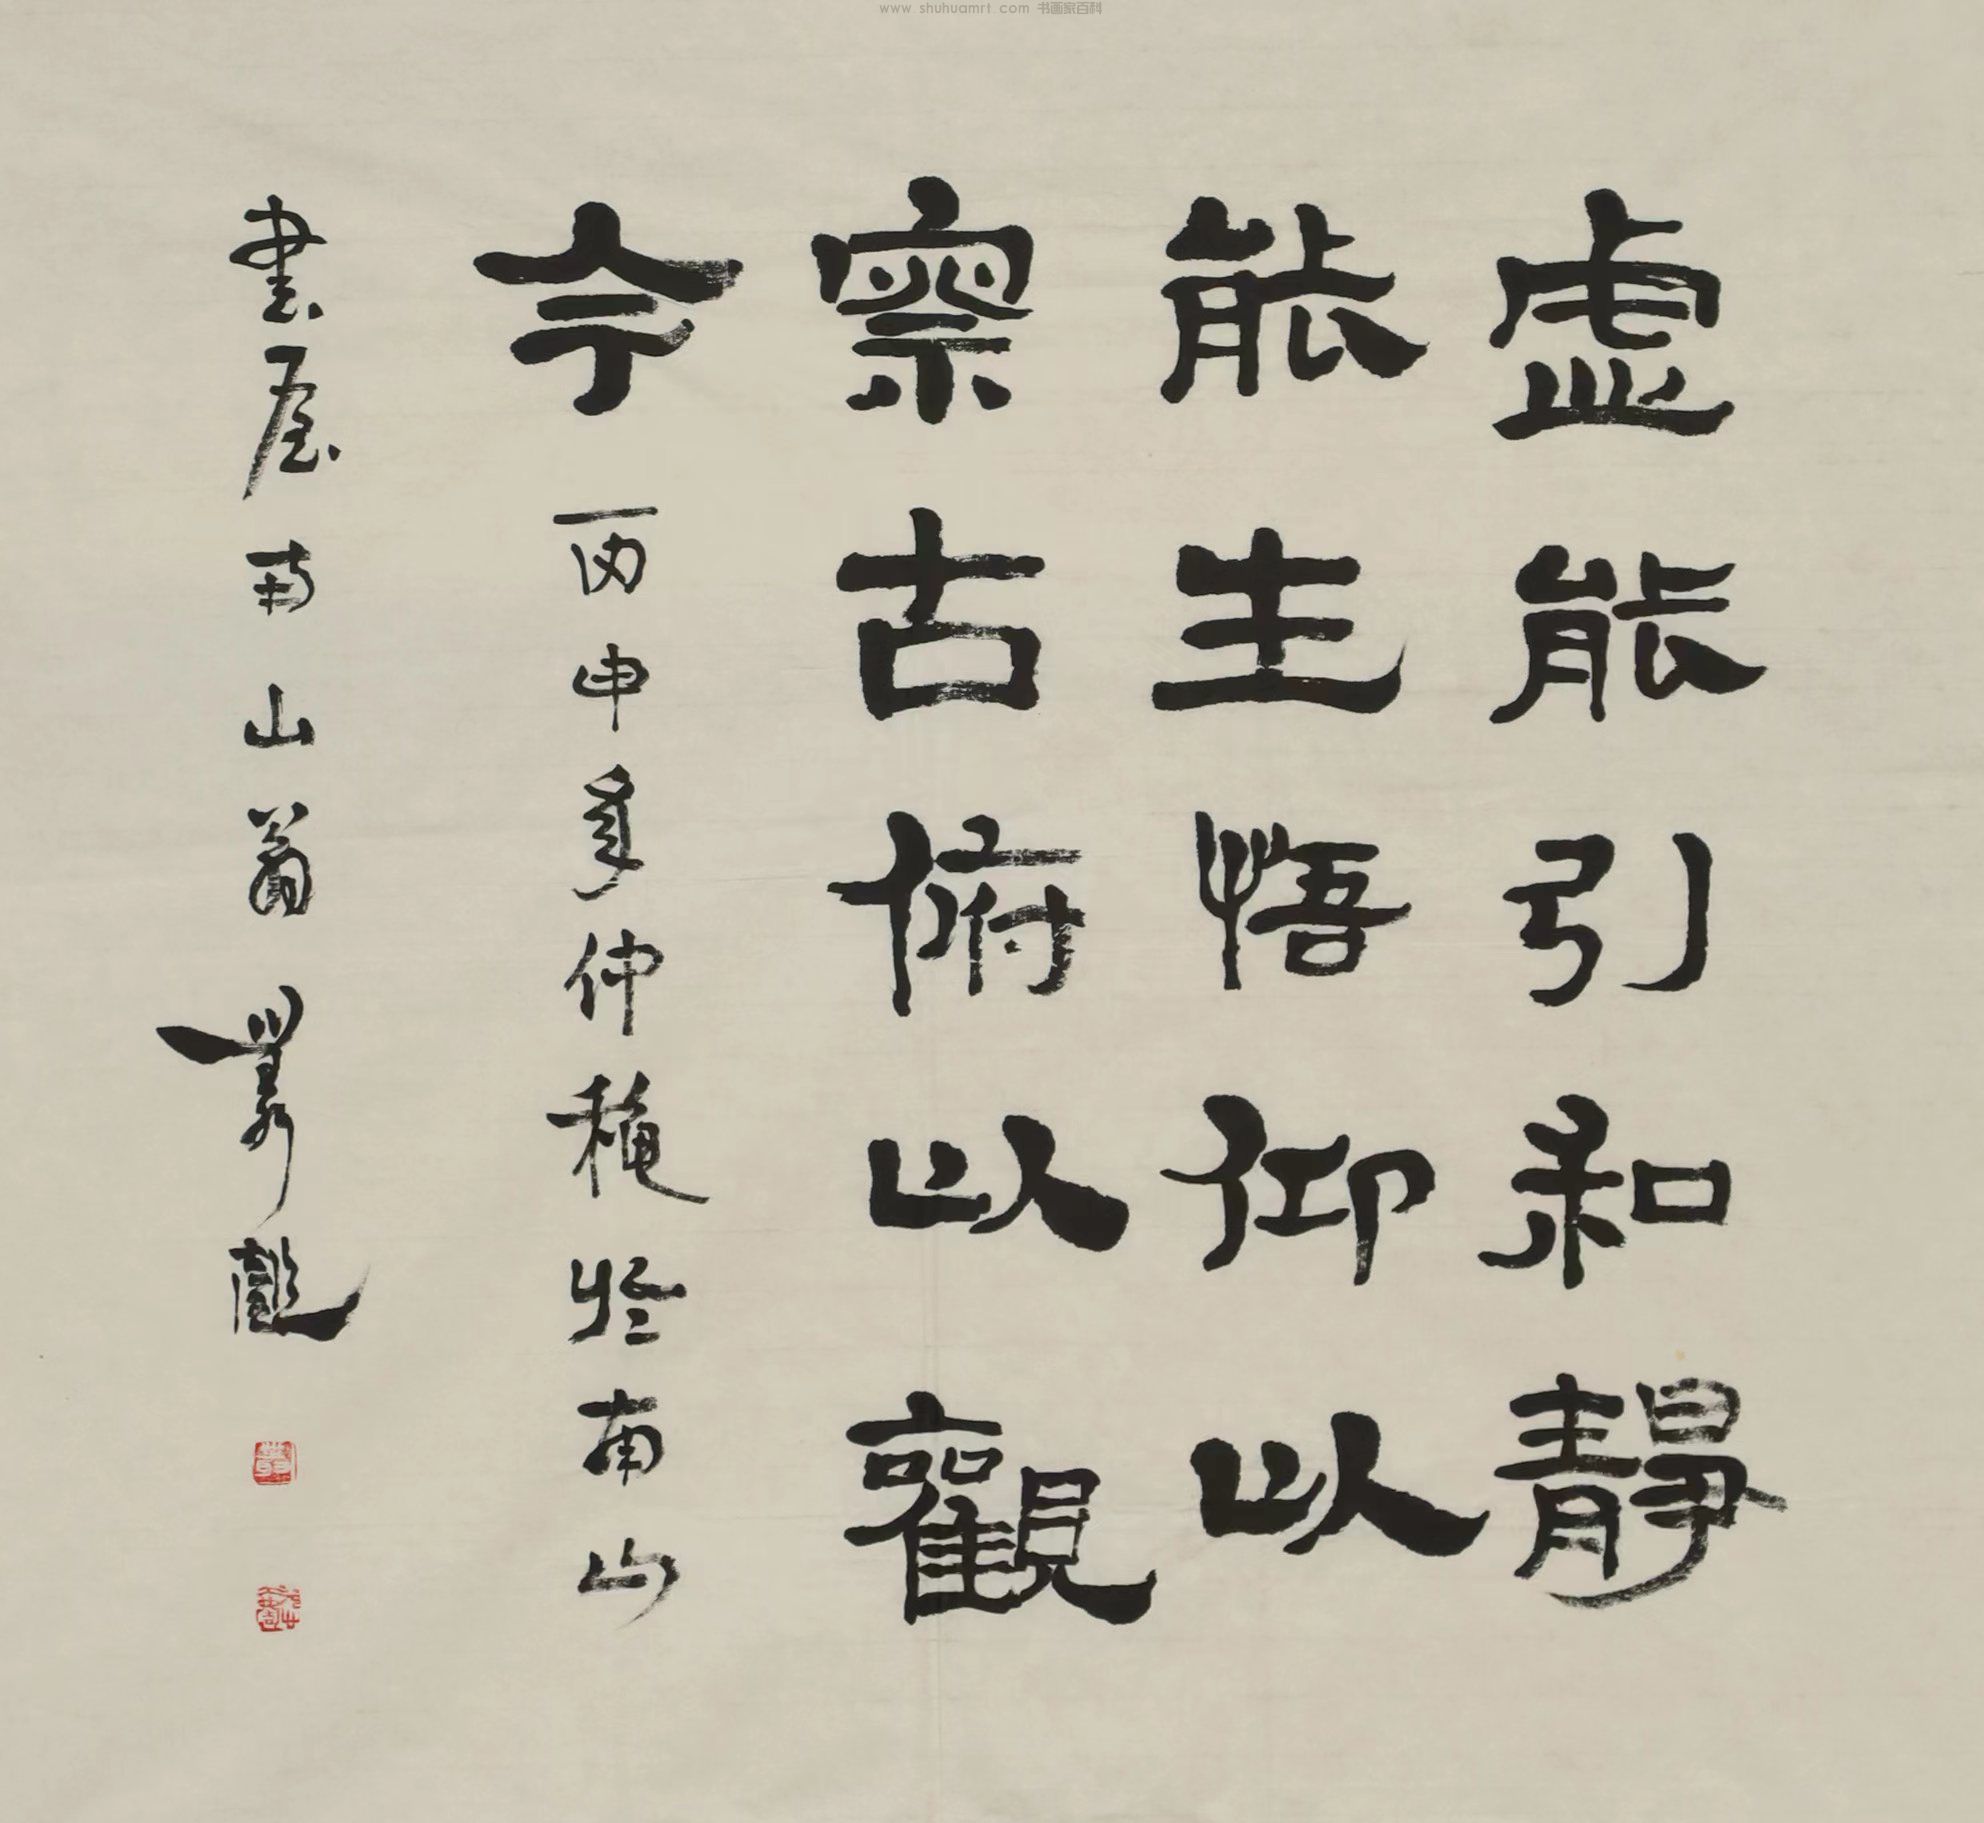 www.shuhuamrt.com 书画家百科
虛能引和靜
能生悟仰以
察古俯以觀
今
丙申年仲秋於南山
書屋南山翁